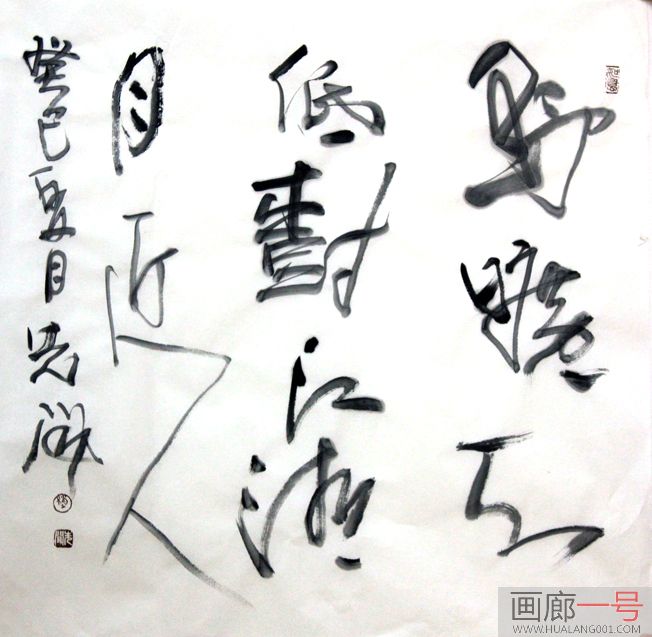 野曠天
低樹江清
月近人
癸巳夏月先
画廊一号
WWW.HUALANG001.COM